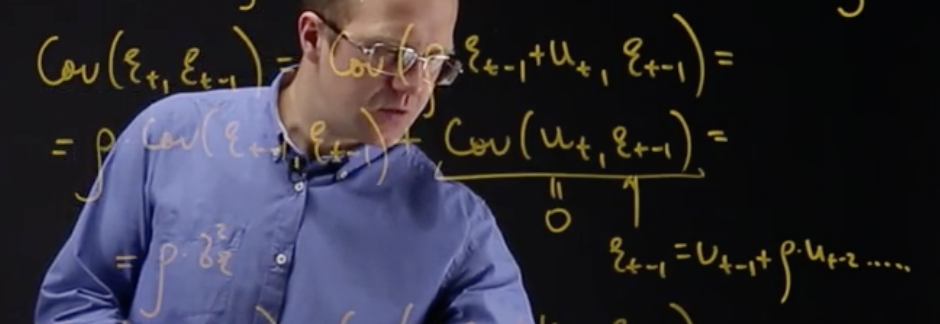 Cov(ε_t, ε_{t-1}) = Cov(ρ·ε_{t-1}+u_t, ε_{t-1}) =
= ρ·Cov(ε_{t-1}, ε_{t-1}) + Cov(u_t, ε_{t-1}) =
|| ↑
0
ε_{t-1} = u_{t-1} + ρ·u_{t-2} .....
= ρ·σ²_ε